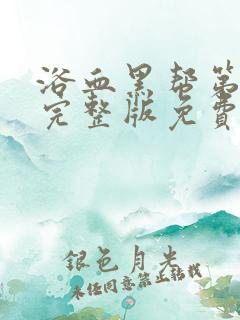 浴血黑帮第
完整版免费
銀色月光
未经同意禁止转载